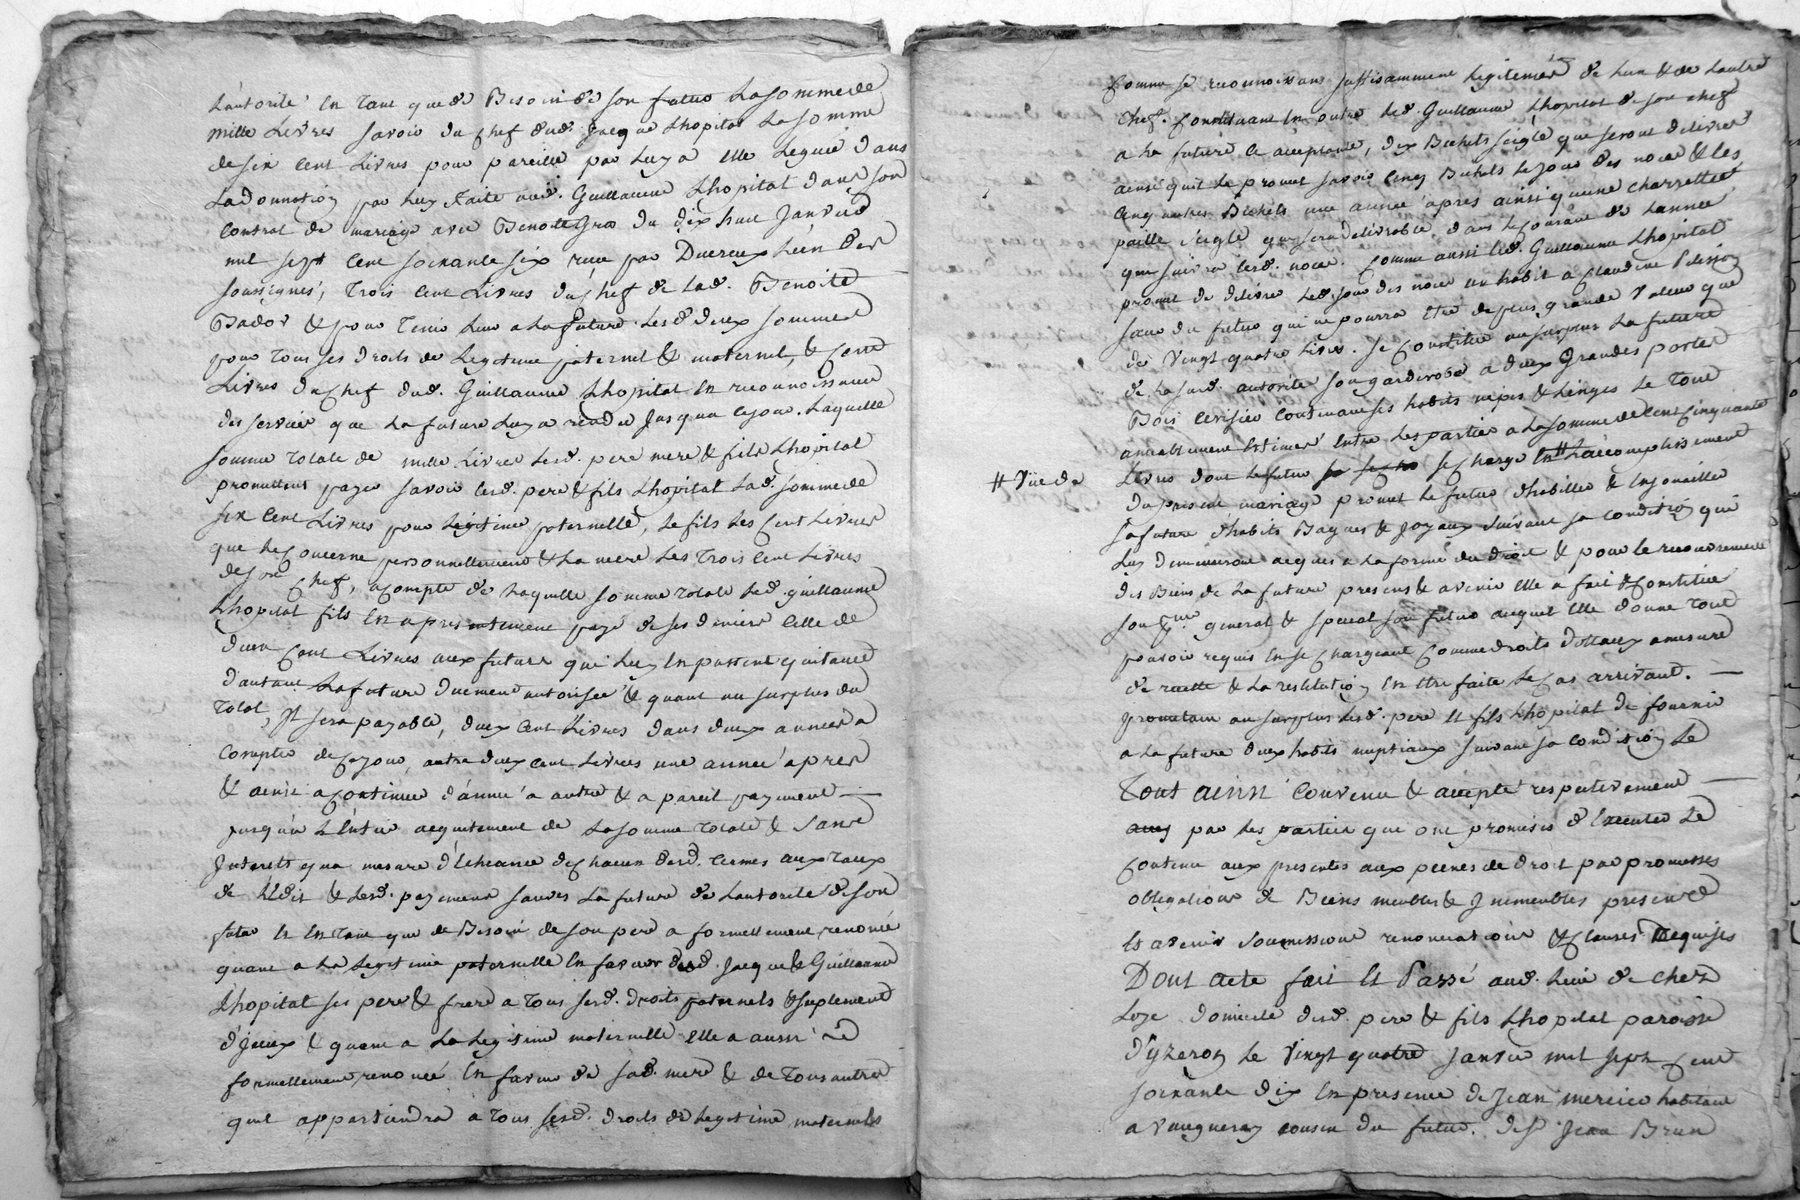 Lautorité en tant que de Besoin de son futur La somme de
mille Livres savoir du chef dud. Jacque Lhopital La somme
de six Cent Livres pour pareille par Luy a Elle Leguée dans
La donnation par Luy faite aud. Guillaume Lhopital dans son
Contrat de mariage avec Benoite Gras du dix huit Janvier
mil sept Cent soixante six receu par Ducreux L'un des
soussignés, Trois Cent Livres du chef de Lad. Benoite
Badot & pour Tenir Lieu a La future Lesd. deux sommes
pour Tous ses droits de Legitime paternel & maternel, & Cent
Livres du Chef dud. Guillaume Lhopital En reconnoissance
des services que La future Luy a rendu Jusqua ce jour. Laquelle
somme Totale de mille Livres Lesd. pere mere & fils Lhopital
promettent payer savoir Lesd. pere & fils Lhopital Lad. somme de
six Cent Livres pour Légitime paternelle, Le fils Les Cent Livres
que Le Concerne personnellement & La mere Les Trois Cent Livres
de son Chef, acompte de Laquelle somme Totale Led. guillaume
Lhopital fils En a presentement payé de ses deniers Celle de
deux Cent Livres aux future qui Luy En passent quitance
d'autant La future duement autorisée & quant au surplus du
Total, Il sera payable, deux Cent Livres dans deux années a
Compter de Ce jour, autre deux Cent Livres une année après
& ainsi a Continuer d'année a autre & a pareil payement
jusqu'a L'entier acquitement de La somme Totale & sans
Interets qu'a mesure d'Echeance de Chacun desd. termes aux Taux
de L'Edit & Lesd. payement sauves La future de Lautorité de son
futur Et En Tant que de Besoin de son pere a formellement renoncé
quant a La Legitime paternelle En faveur desd. Jacque & Guillaume
Lhopital ses pere & frere a Tous sesd. droits paternels & suplement
d'Jceux & quant a La Legitime maternelle elle a aussi
formellement renoncé En faveur de sad. mere & de Tous autres
quil appartiendra a Tous sesd. droits de Legitime maternels
Comme se reconnoissant suffisamment Legitimée de Lun & de Lautre
Chef. Constituant En outre Led. Guillaume Lhopital de son chef
a La future Ce acceptante, dix Bichets seigle que seront delivrés
ainsi quil Le promet savoir Cinq Bichets Le jour des noces & Les
Cinq autres Bichets une année après ainsi qu'une charretté
paille seigle que sera delivrable dans Le Courant de Lannée
que suivra Lesd. noces. Comme aussi Led. Guillaume Lhopital
promet de delivrer Led. jour des noces un habit a Claudine Plesson
sœur du futur qui ne pourra Etre de plus grande valeur que
de vingt quatre Livres. Se Constitue au surplus La future
de La susd. autorité son garderobe a deux grandes portes
Bois Cerisier Contenant ses habits nipes & Linges Le Tout
amiablement Estimés Entre Les parties a La somme de Cent Cinquante
Livres dont Le futur se charge En # L'accomplissement
# Vüe de
du present mariage promet Le futur d'habiller & Enjoailler
sa future d'habits Bagues & Joyaux suivant sa condition qui
Luy demeureront acquis a La forme du droit & pour Le recouvrement
des Biens de La future presents & avenir Elle a fait & Constitué
son general & special son futur auquel Elle donne Tout
pouvoir requis En se Chargeant Comme droits dottaux a mesure
de recette & La restitution En Etre faite Le Cas arrivant.
promettant au surplus Lesd. pere Et fils Lhopital de fournir
a La future deux habits nuptiaux suivant sa condition Le
Tout ainsi Convenu & accepté respectivement
par Les parties que ont promises d'Executer Le
Contenu aux presentes aux peines de droit par promesses
obligations de Biens meubles & Jmmeubles presents
Et avenir soumissions renonciations & Clauses Requises
Dont acte fait Et Passé aud. Lieu de chez
Loze domicile desd. pere & fils Lhopital paroisse
d'yzeron Le vingt quatre Janvier mil sept Cent
soixante dix En presence de Jean mercier habitant
a vaugneray cousin du futur. de Sr Jean Brun